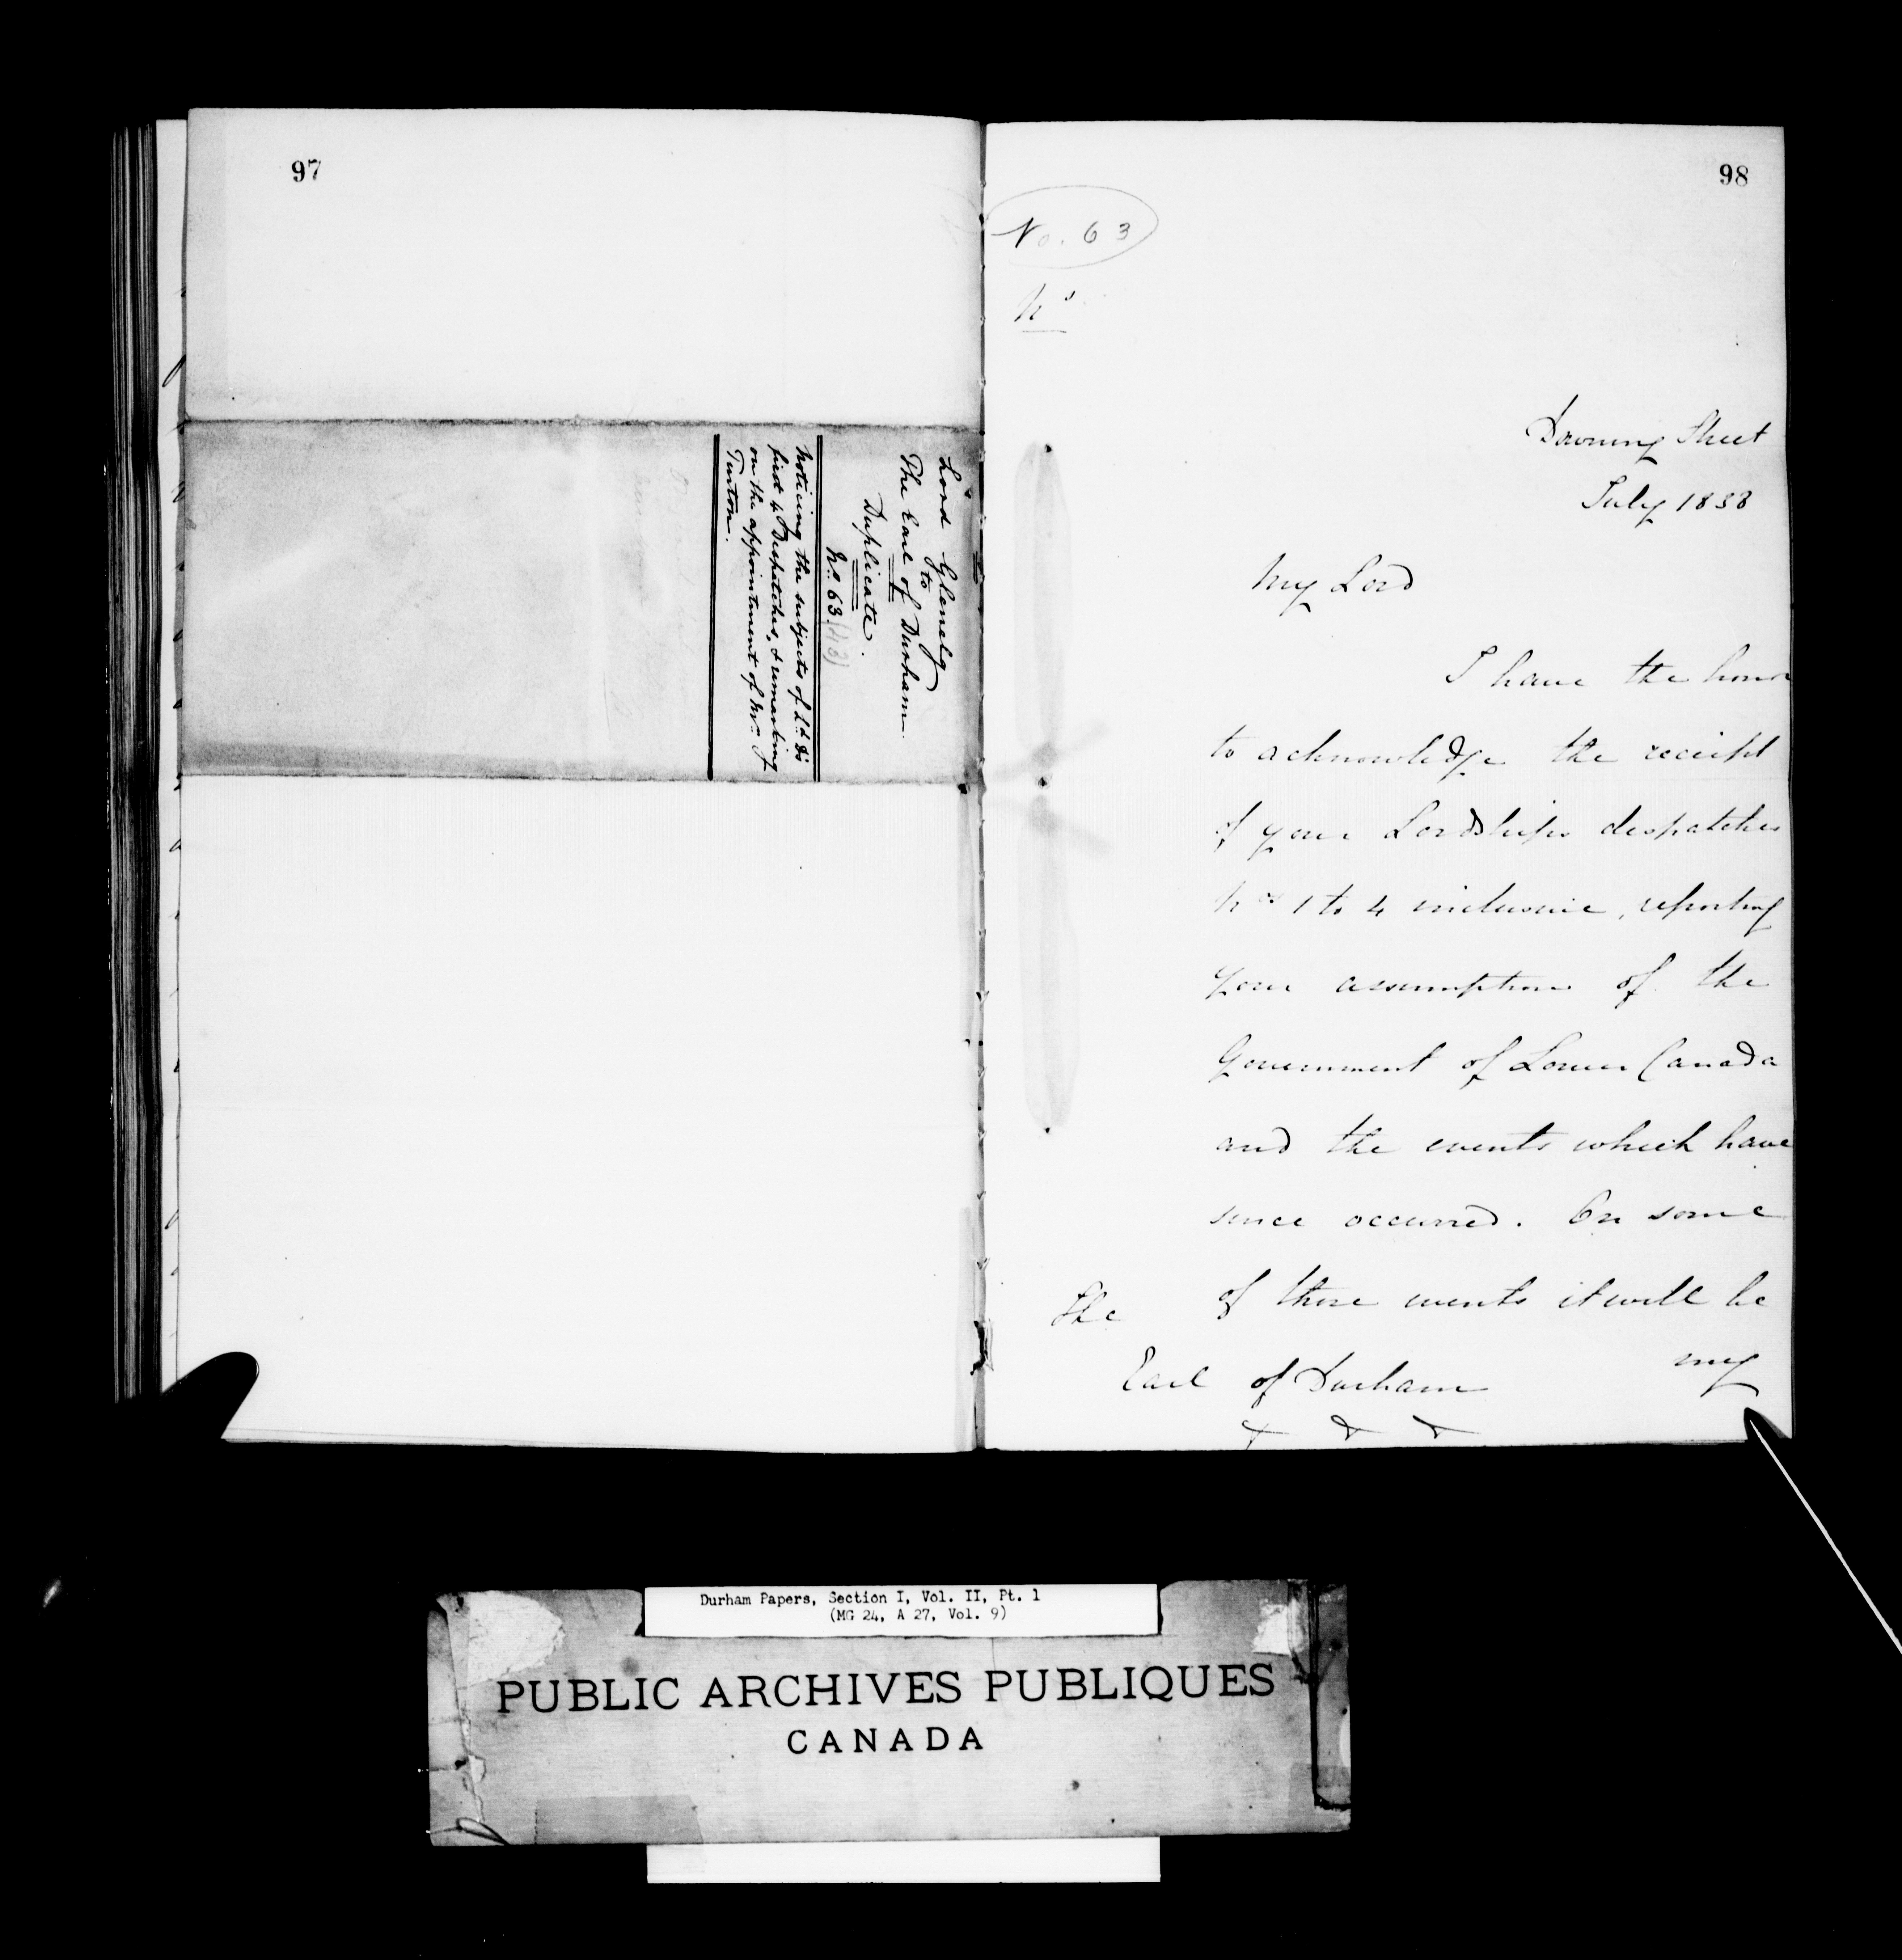 97
Lord Glenelg
to
The Earl of Durham.
Duplicate.
No. 63. (43)
Noticing the subjects of Ld. D's
first 4 Despatches, & remarking
on the appointment of Mr. J
Turton.
98
No. 63
No
Downing Street
July 1838
My Lord
I have the honor
to acknowledge the receipt
of your Lordships despatches
Nos 1 to 4 inclusive, reporting
your assumption of the
Government of Lower Canada
and the events which have
since occurred. On some
of these events it will be
my
The
Earl of Durham
& & &
Durham Papers, Section I, Vol. II, Pt. 1
(MG 24, A 27, Vol. 9)
PUBLIC ARCHIVES PUBLIQUES
CANADA